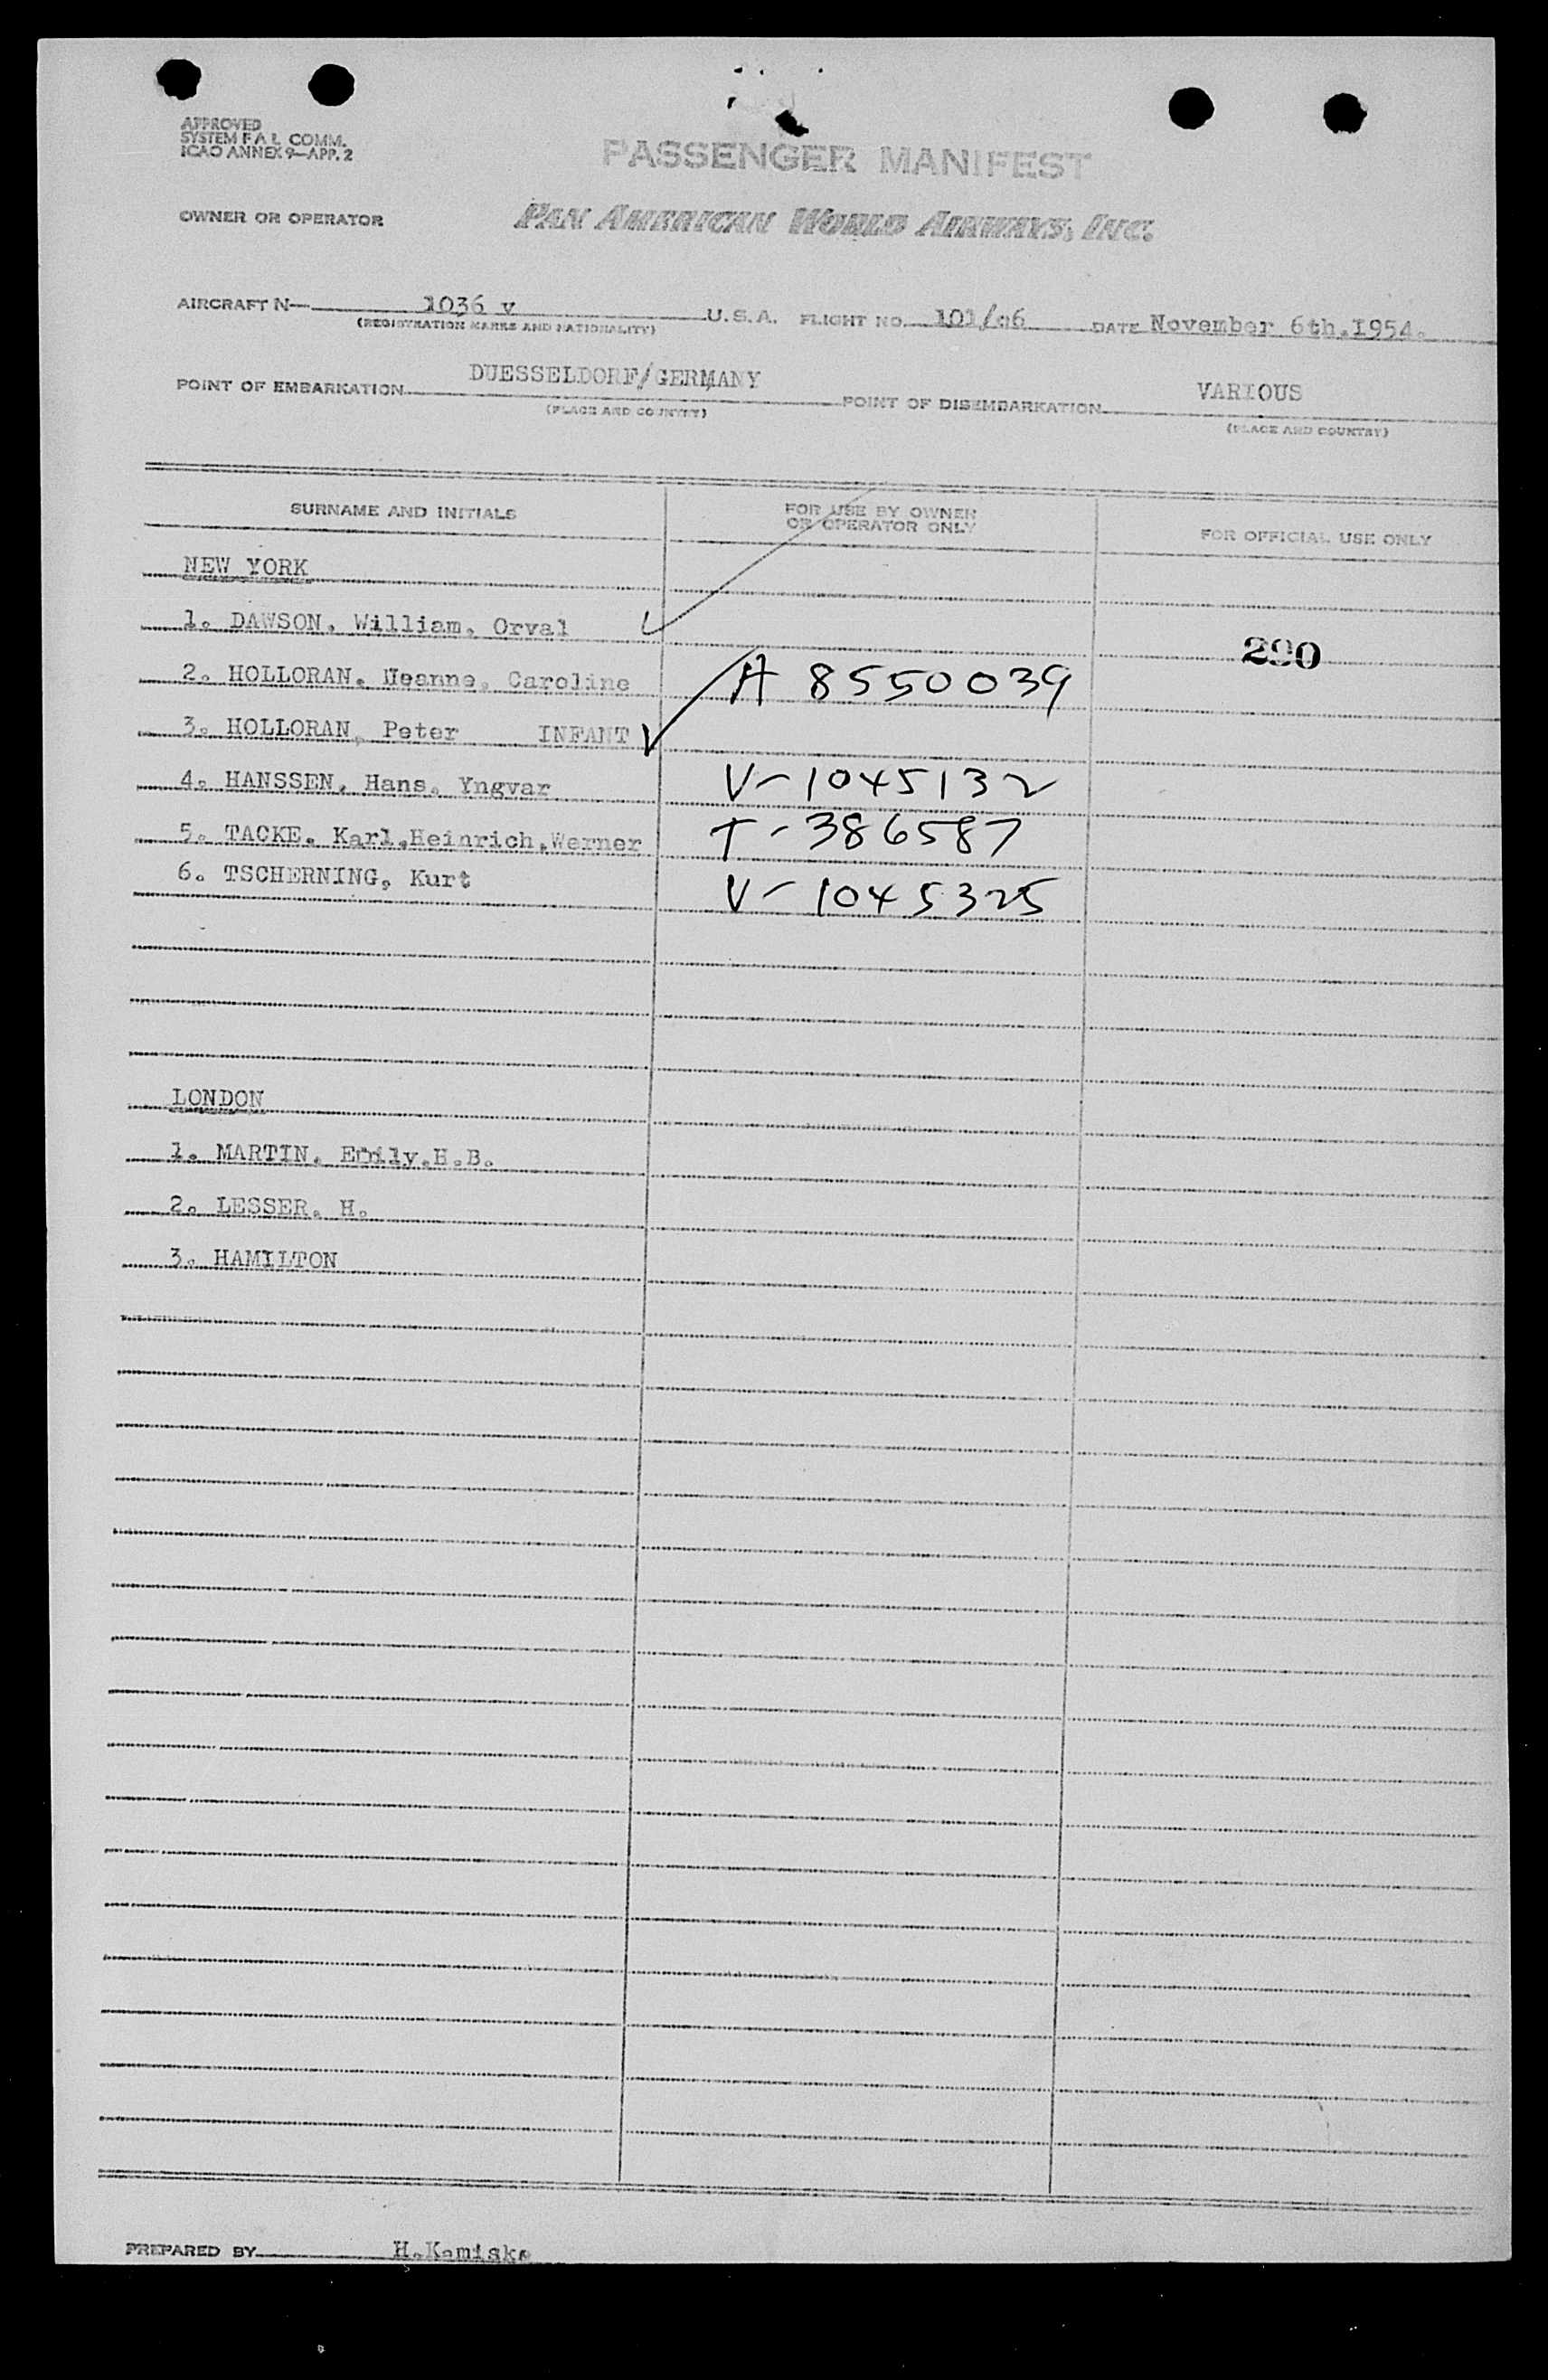 APPROVED
SYSTEM F A L COMM.
ICAO ANNEX 9—APP. 2
PASSENGER MANIFEST
OWNER OR OPERATOR PAN AMERICAN WORLD AIRWAYS, INC.
AIRCRAFT N— 1036 v U.S.A. FLIGHT NO. 101/06 DATE November 6th.1954.
(REGISTRATION MARKS AND NATIONALITY)
POINT OF EMBARKATION DUESSELDORF/GERMANY POINT OF DISEMBARKATION VARIOUS
(PLACE AND COUNTRY) (PLACE AND COUNTRY)
SURNAME AND INITIALS FOR USE BY OWNER OR OPERATOR ONLY FOR OFFICIAL USE ONLY
NEW YORK
1. DAWSON, William, Orval
290
2. HOLLORAN, Caroline A 8550039
3. HOLLORAN, Peter INFANT
4. HANSSEN, Hans, Yngvar V-1045132
5. TACKE, Karl,Heinrich,Werner T-386587
6. TSCHERNING, Kurt V-1045325
LONDON
1. MARTIN, Emily.H.B.
2. LESSER, H.
3. HAMILTON
PREPARED BY H.Kamiske